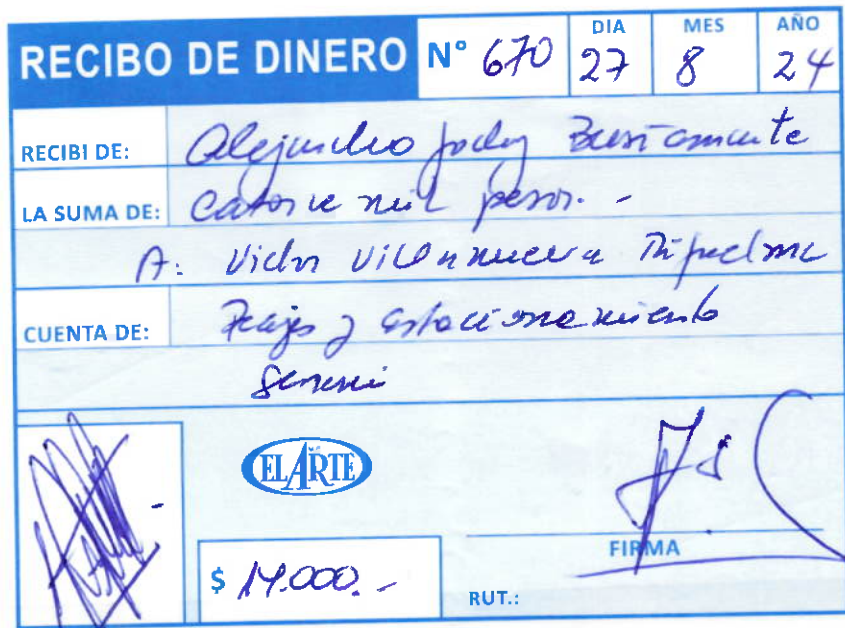 RECIBO DE DINERO N° 670 DIA 27 MES 8 AÑO 24
RECIBI DE: Alejandro Bustamante
LA SUMA DE: Catorce mil pesos. -
A: Victor Villanueva
CUENTA DE: Peajes y estacionamiento
EL ARTE
FIRMA
$ 14.000.-
RUT.: